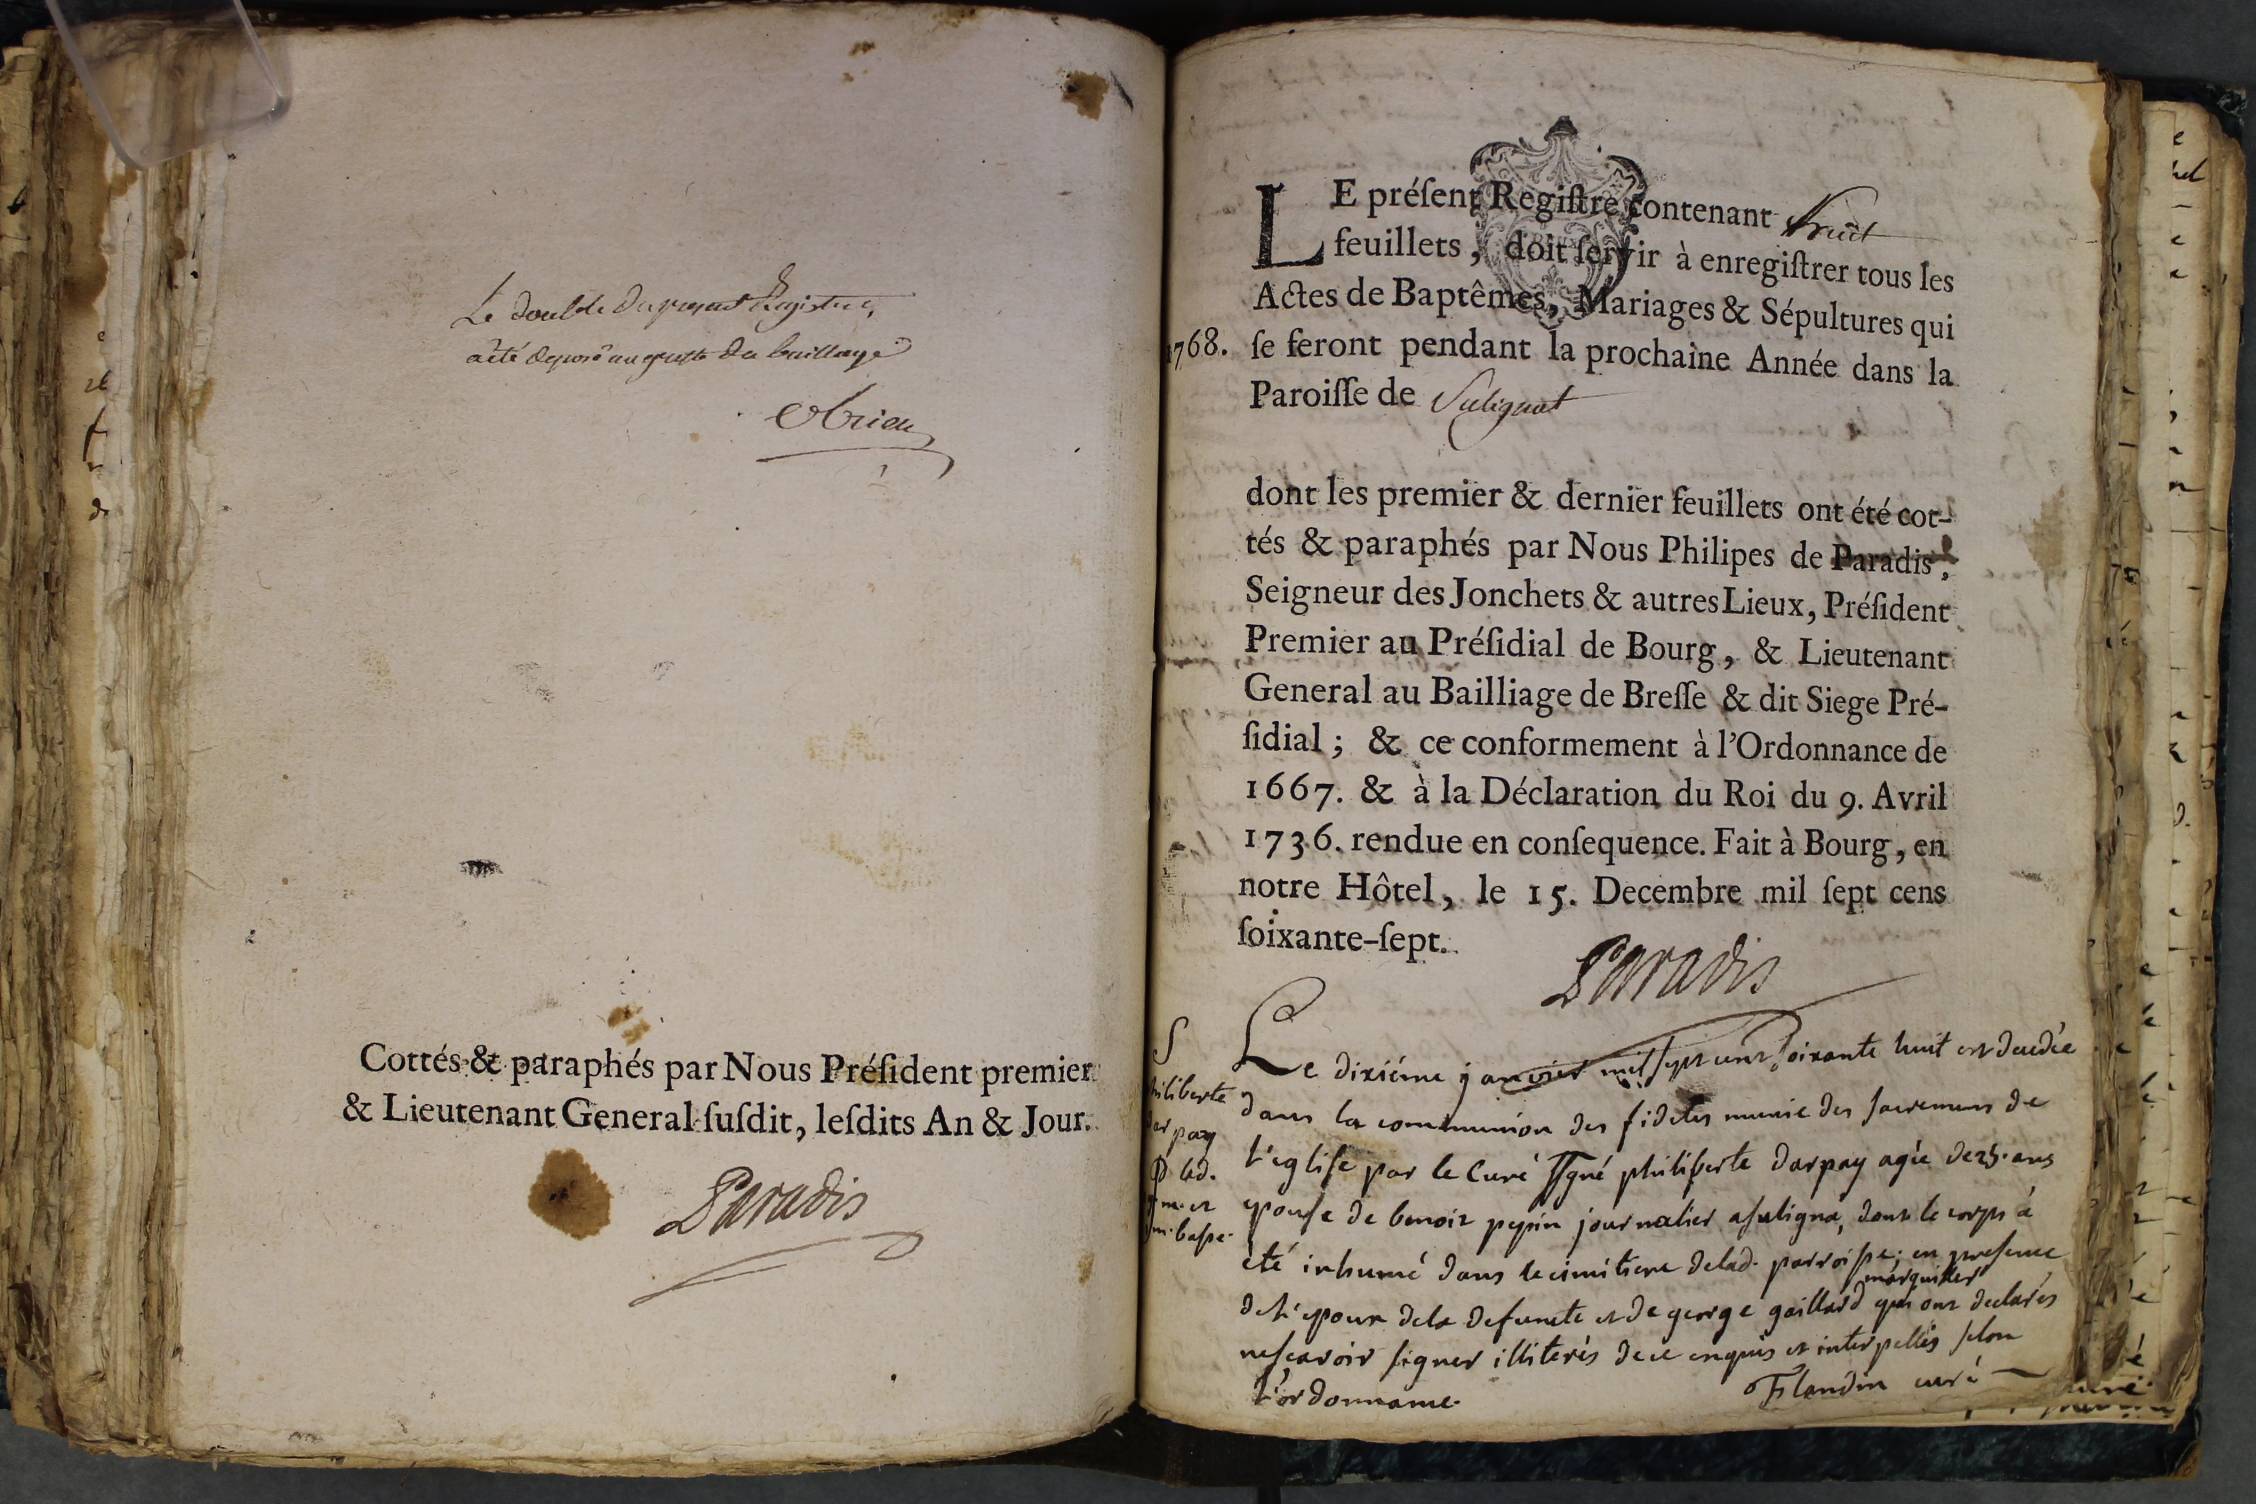 Le double du present Registre,
a été deposé au greffe du bailliage
Cottés & paraphés par Nous Préſident premier
& Lieutenant General ſuſdit, leſdits An & Jour.
Paradis
LE préſent Regiſtre contenant huit
feuillets, doit ſervir à enregiſtrer tous les
Actes de Baptêmes, Mariages & Sépultures qui
1768. ſe feront pendant la prochaine Année dans la
Paroiſſe de Sulignat
dont les premier & dernier feuillets ont été cot-
tés & paraphés par Nous Philipes de Paradis,
Seigneur des Jonchets & autres Lieux, Préſident
Premier au Préſidial de Bourg, & Lieutenant
General au Bailliage de Breſſe & dit Siege Pré-
ſidial ; & ce conformement à l'Ordonnance de
1667. & à la Déclaration du Roi du 9. Avril
1736. rendue en conſequence. Fait à Bourg, en
notre Hôtel, le 15. Decembre mil ſept cens
ſoixante-ſept.
Paradis
S
philiberte
darpay
Le dixiéme janvier mil sept cent soixante huit est decedée
dans la communion des fideles munie des sacremens de
l'eglise par le curé ssgné philiberte darpay agée de 25. ans
epouse de benoit pepin journalier a suligna, dont le corps à
été inhumé dans le cimitiere de lad. parroisse. en presence
de l'epoux de la defuncte et de george gaillard marguiller qui ont declarés
ne sçavoir signer illiterés de ce enquis et interpellés selon
l'ordonnance.
Flandin curé